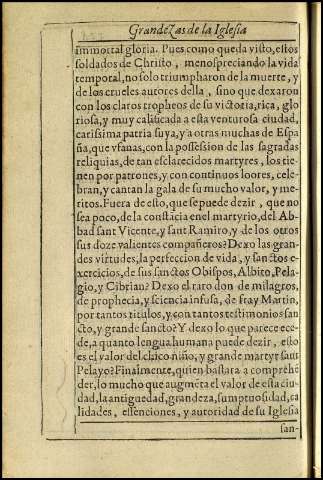 Grandezas de la Iglesia
immortal gloria. Pues como queda visto, estos
soldados de Christo, menospreciando la vida
temporal, no solo triumpharon de la muerte, y
de los crueles autores della, sino que dexaron
con los claros tropheos de su victoria, rica, glo
riosa, y muy calificada a esta venturosa ciudad,
carissima patria suya, y a otras muchas de Espa
ña, que vfanas, con la possession de las sagradas
reliquias, de tan esclarecidos martyres, los tie-
nen por patrones, y con continuos loores, cele-
bran, y cantan la gala de su mucho valor, y me-
ritos. Fuera de esto, que se puede dezir, que no
sea poco, de la constãcia en el martyrio, del Ab-
bad sant Vicente, y sant Ramiro, y de los otros
sus doze valientes compañeros? Dexo las gran-
des virtudes, la perfeccion de vida, y sanctos e-
xercicios, de sus sanctos Obispos, Albito, Pela-
gio, y Cibrian? Dexo el raro don de milagros,
de prophecia, y sciencia infusa, de fray Martin,
por tantos titulos, y con tantos testimonios san
cto, y grande sancto? Y dexo lo que parece ece-
de, a quanto lengua humana puede dezir, esto
es el valor del chico niño, y grande martyr sant
Pelayo? Finalmente, quien bastara a comprehẽ
der, lo mucho que augmẽta el valor de esta ciu-
dad, la antiguedad, grandeza, sumptuosidad, ca
lidades, essenciones, y autoridad de su Iglesia
san-